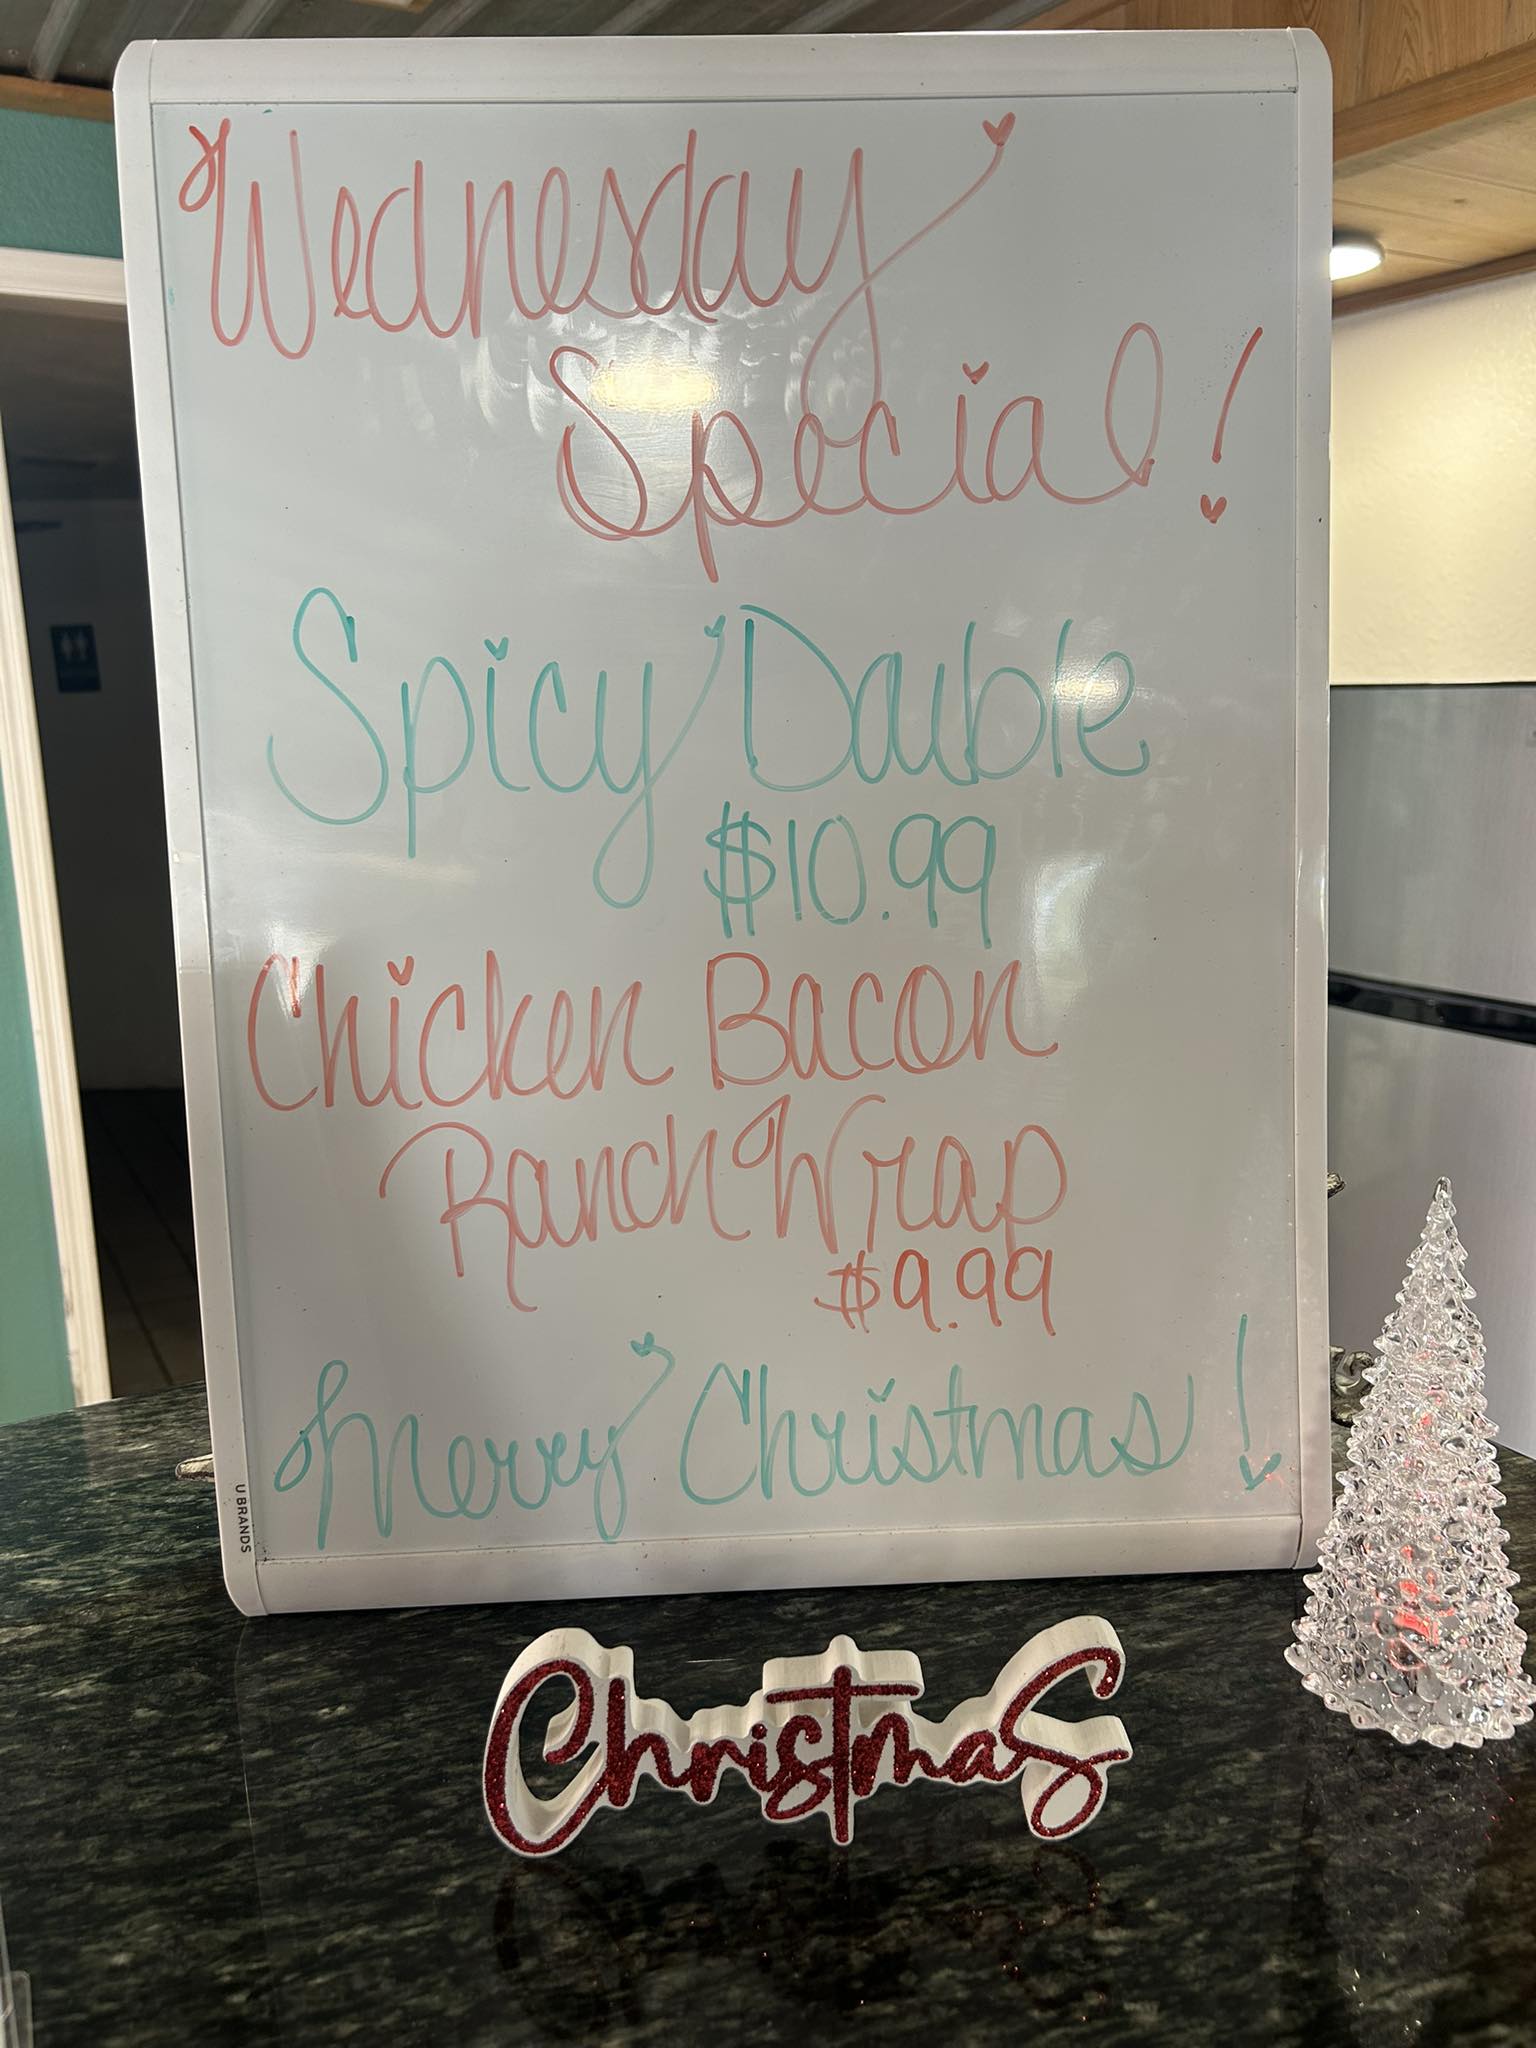 Wednesday
Special!
Spicy Double
$10.99
Chicken Bacon
Ranch Wrap
$9.99
Merry Christmas!
U BRANDS
Christmas